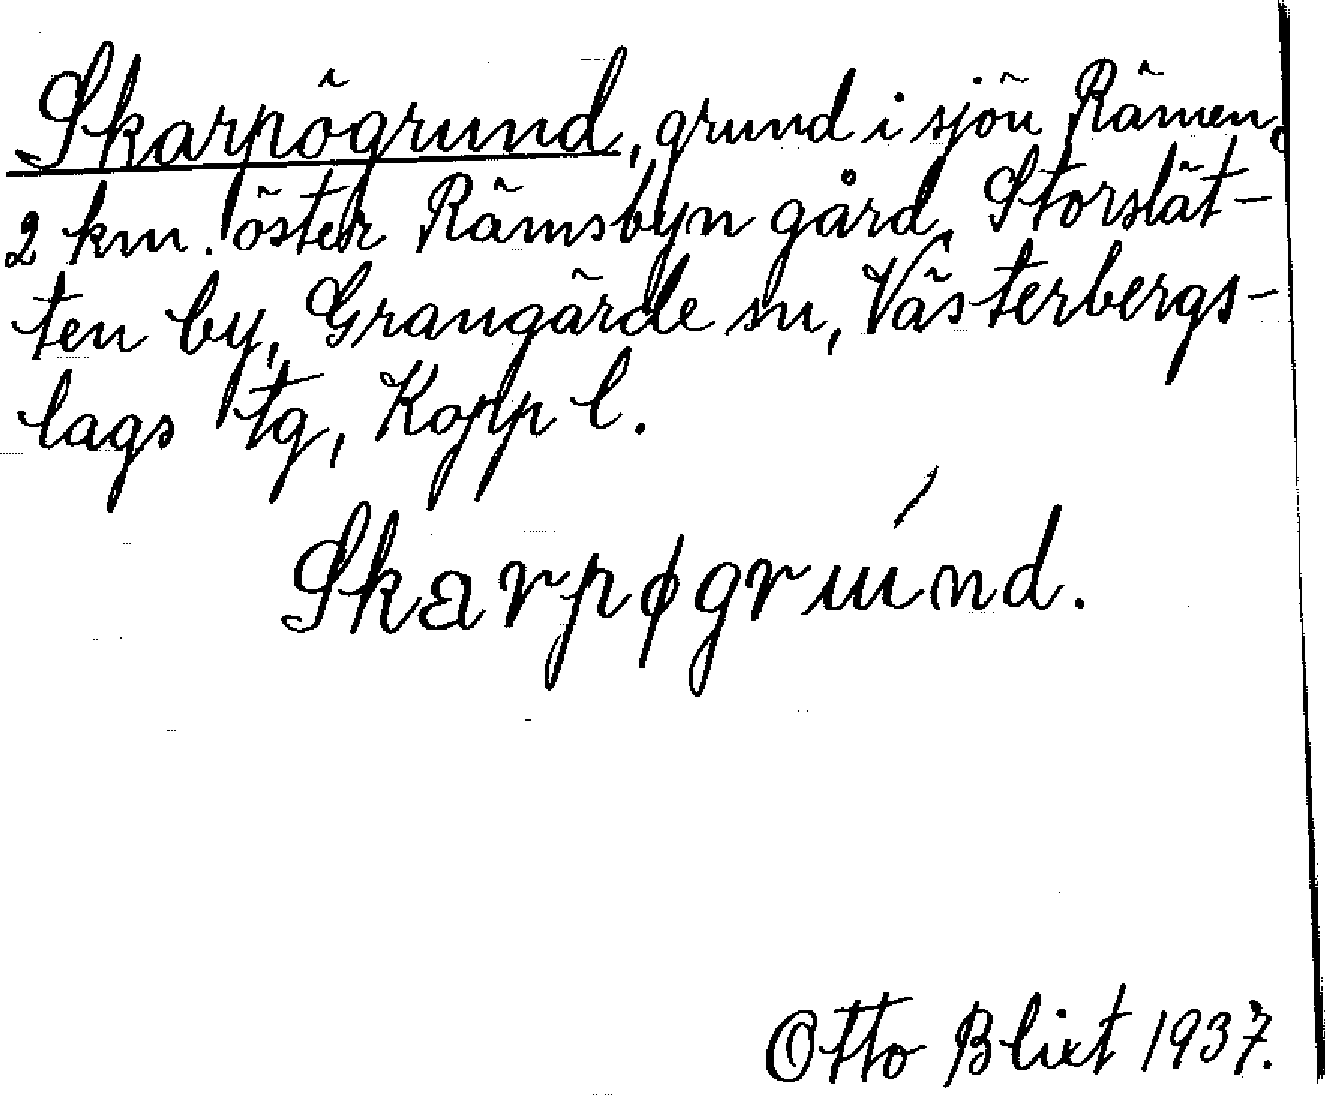 Skarpögrund, grund i sjön Rämen,
2 km. öster Rämsbyn gård, Storslät-
ten by, Grangärde sn, Västerbergs-
lags tg, Kopp l.
Skarpøgrúnd.
Otto Blixt 1937.